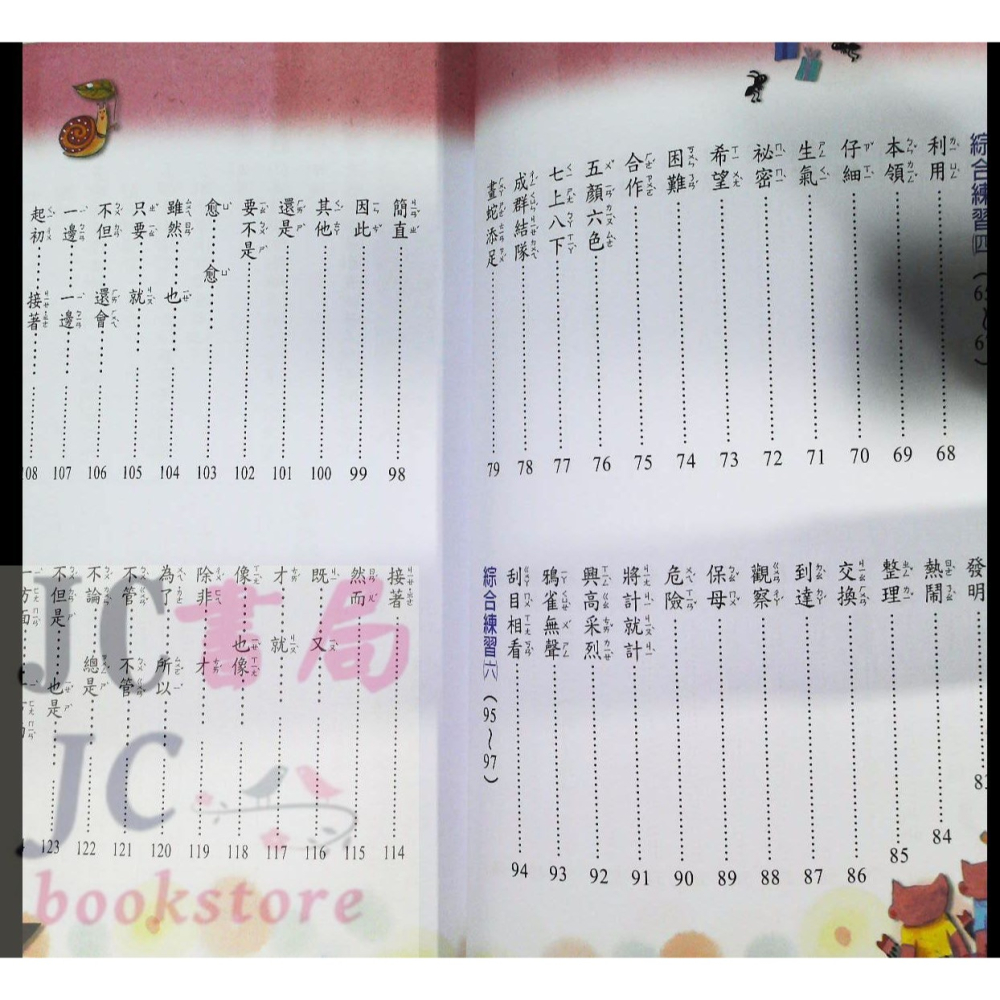 綜合練習(四)
利用 68
本領 69
仔細 70
生氣 71
祕密 72
希望 73
困難 74
合作 75
五顏六色 76
七上八下 77
成群結隊 78
畫蛇添足 79
發明
熱鬧 84
整理 85
交換 86
到達 87
觀察 88
保母 89
危險 90
將計就計 91
興高采烈 92
鴉雀無聲 93
刮目相看 94
綜合練習(六)(95~97)
簡直 98
因此 99
其他 100
還是 101
要不是 102
愈……愈 103
雖然……也 104
只要……就 105
不但……還會 106
一邊……一邊 107
起初……接著 108
接著 114
然而 115
既……又 116
才……就 117
像……也像 118
除非……才 119
為了……所以 120
不管……不管 121
不論……總是 122
不但是……也是 123
JC書局
JC
bookstore